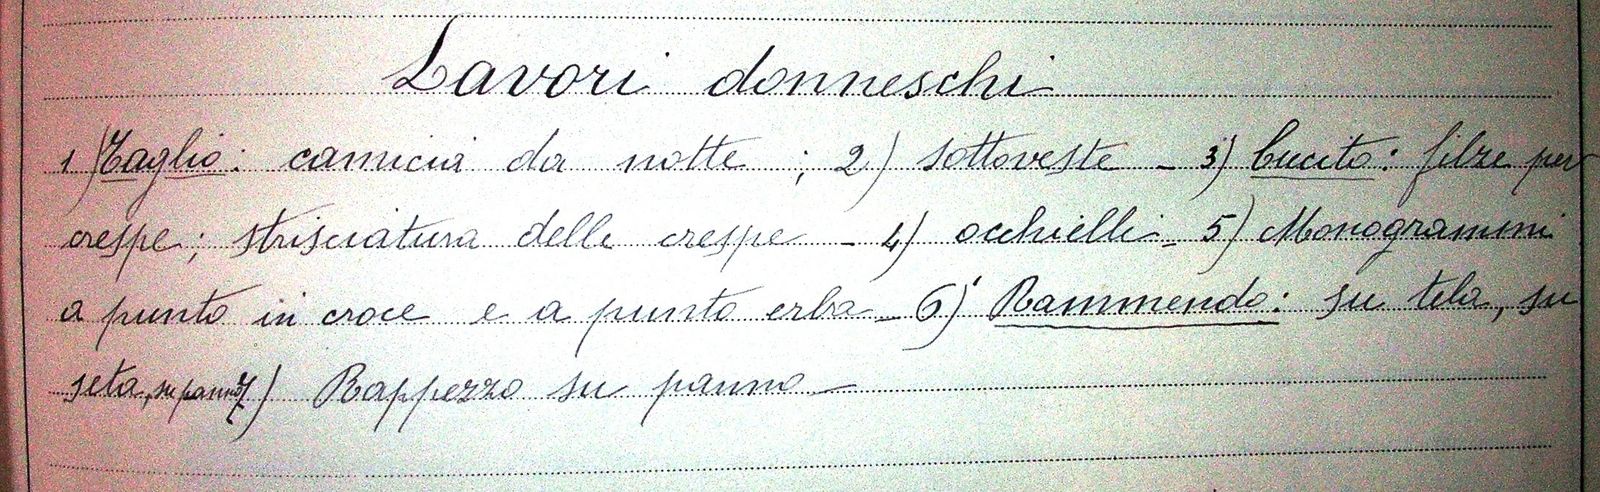 Lavori donneschi
1) Taglio: camicia da notte; 2) sottoveste - 3) cucito: filze per
crespe; strisciatura delle crespe - 4) occhielli - 5) Monogrammi
a punto in croce e a punto erba - 6) Rammendo: su tela, su
seta, su panno 7) Rappezzo su panno -